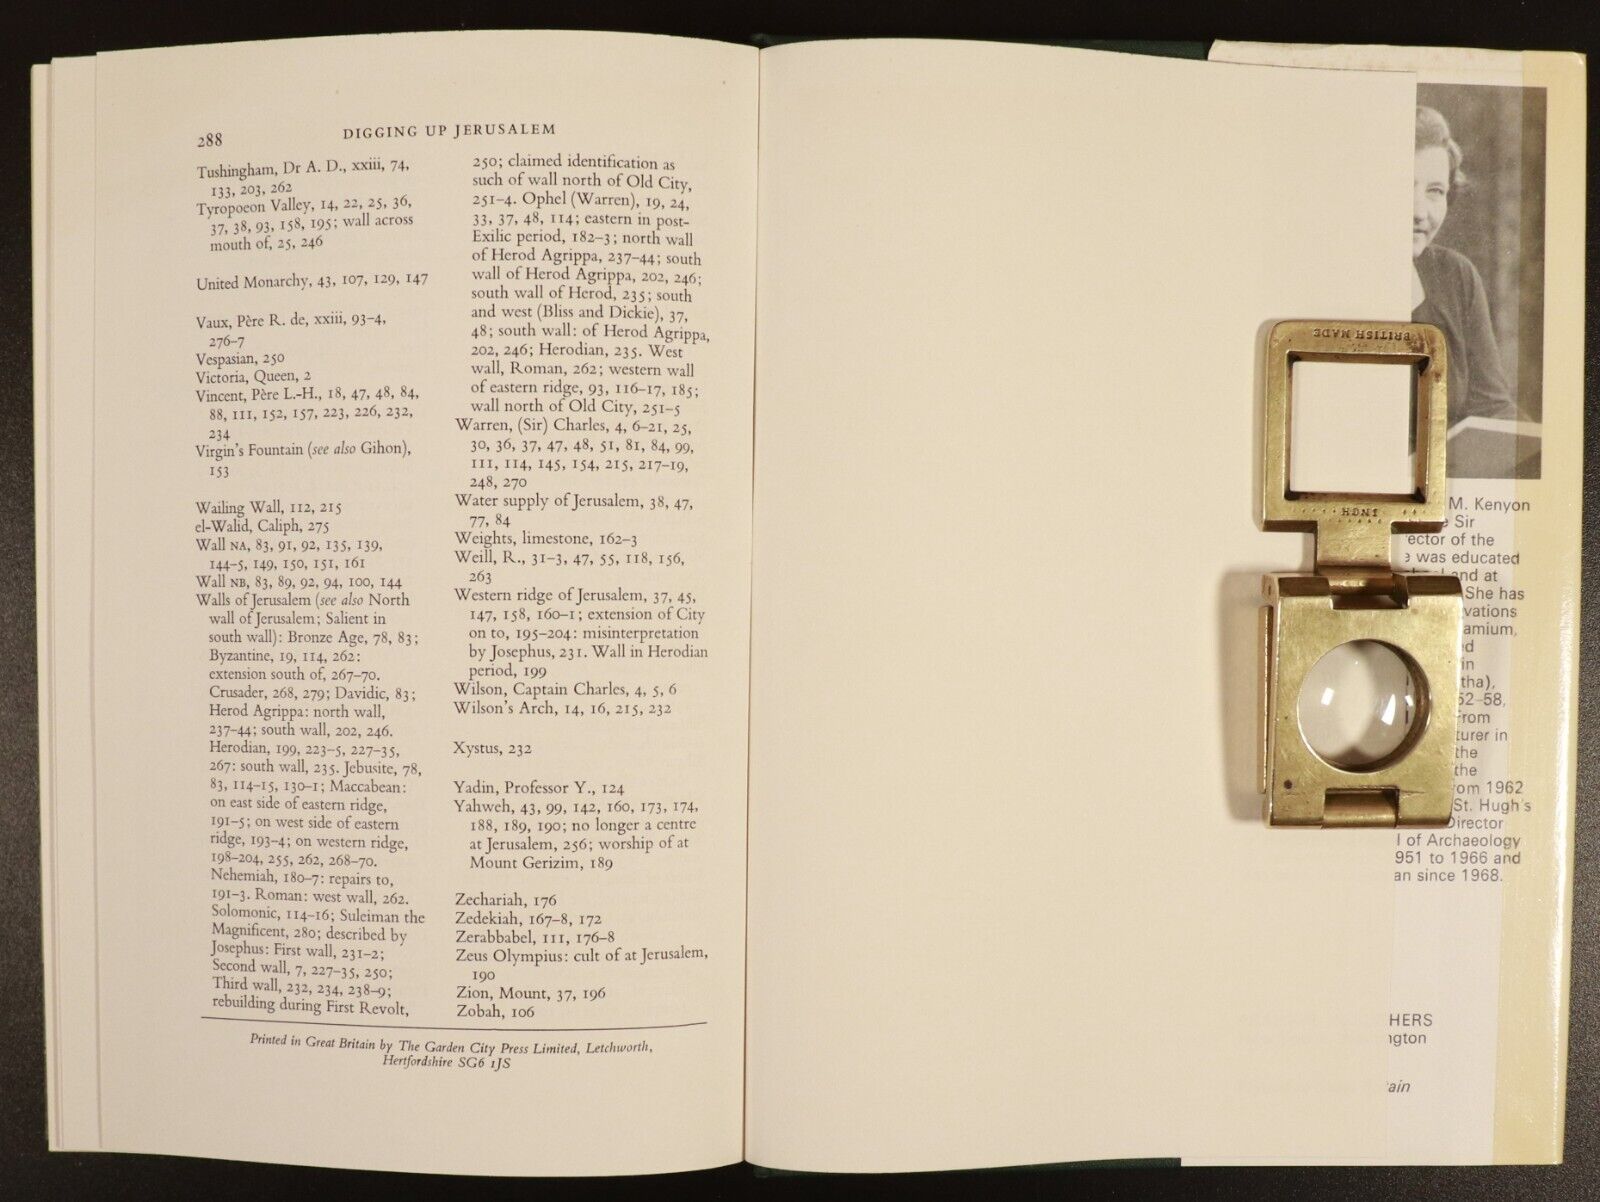 288
DIGGING UP JERUSALEM
Tushingham, Dr A. D., xxiii, 74,
133, 203, 262
Tyropoeon Valley, 14, 22, 25, 36,
37, 38, 93, 158, 195; wall across
mouth of, 25, 246
United Monarchy, 43, 107, 129, 147
Vaux, Père R. de, xxiii, 93–4,
276–7
Vespasian, 250
Victoria, Queen, 2
Vincent, Père L.-H., 18, 47, 48, 84,
88, 111, 152, 157, 223, 226, 232,
234
Virgin's Fountain (see also Gihon),
153
Wailing Wall, 112, 215
el-Walid, Caliph, 275
Wall NA, 83, 91, 92, 135, 139,
144–5, 149, 150, 151, 161
Wall NB, 83, 89, 92, 94, 100, 144
Walls of Jerusalem (see also North
wall of Jerusalem; Salient in
south wall): Bronze Age, 78, 83;
Byzantine, 19, 114, 262:
extension south of, 267–70.
Crusader, 268, 279; Davidic, 83;
Herod Agrippa: north wall,
237–44; south wall, 202, 246.
Herodian, 199, 223–5, 227–35,
267: south wall, 235. Jebusite, 78,
83, 114–15, 130–1; Maccabean:
on east side of eastern ridge,
191–5; on west side of eastern
ridge, 193–4; on western ridge,
198–204, 255, 262, 268–70.
Nehemiah, 180–7: repairs to,
191–3. Roman: west wall, 262.
Solomonic, 114–16; Suleiman the
Magnificent, 280; described by
Josephus: First wall, 231–2;
Second wall, 7, 227–35, 250;
Third wall, 232, 234, 238–9;
rebuilding during First Revolt,
250; claimed identification as
such of wall north of Old City,
251–4. Ophel (Warren), 19, 24,
33, 37, 48, 114; eastern in post-
Exilic period, 182–3; north wall
of Herod Agrippa, 237–44; south
wall of Herod Agrippa, 202, 246;
south wall of Herod, 235; south
and west (Bliss and Dickie), 37,
48; south wall: of Herod Agrippa,
202, 246; Herodian, 235. West
wall, Roman, 262; western wall
of eastern ridge, 93, 116–17, 185;
wall north of Old City, 251–5
Warren, (Sir) Charles, 4, 6–21, 25,
30, 36, 37, 47, 48, 51, 81, 84, 99,
111, 114, 145, 154, 215, 217–19,
248, 270
Water supply of Jerusalem, 38, 47,
77, 84
Weights, limestone, 162–3
Weill, R., 31–3, 47, 55, 118, 156,
263
Western ridge of Jerusalem, 37, 45,
147, 158, 160–1; extension of City
on to, 195–204: misinterpretation
by Josephus, 231. Wall in Herodian
period, 199
Wilson, Captain Charles, 4, 5, 6
Wilson's Arch, 14, 16, 215, 232
Xystus, 232
Yadin, Professor Y., 124
Yahweh, 43, 99, 142, 160, 173, 174,
188, 189, 190; no longer a centre
at Jerusalem, 256; worship of at
Mount Gerizim, 189
Zechariah, 176
Zedekiah, 167–8, 172
Zerabbabel, 111, 176–8
Zeus Olympius: cult of at Jerusalem,
190
Zion, Mount, 37, 196
Zobah, 106
Printed in Great Britain by The Garden City Press Limited, Letchworth,
Hertfordshire SG6 1JS
BRITISH MADE
INCH
M. Kenyon
Sir
of the
was educated
and at
She has
in
52–58,
in
the
the
1962
St. Hugh's
Director
of Archaeology
1951 to 1966 and
since 1968.